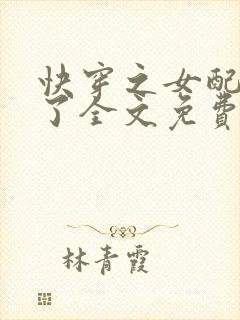 快穿之女配
了全文免費
林青霞